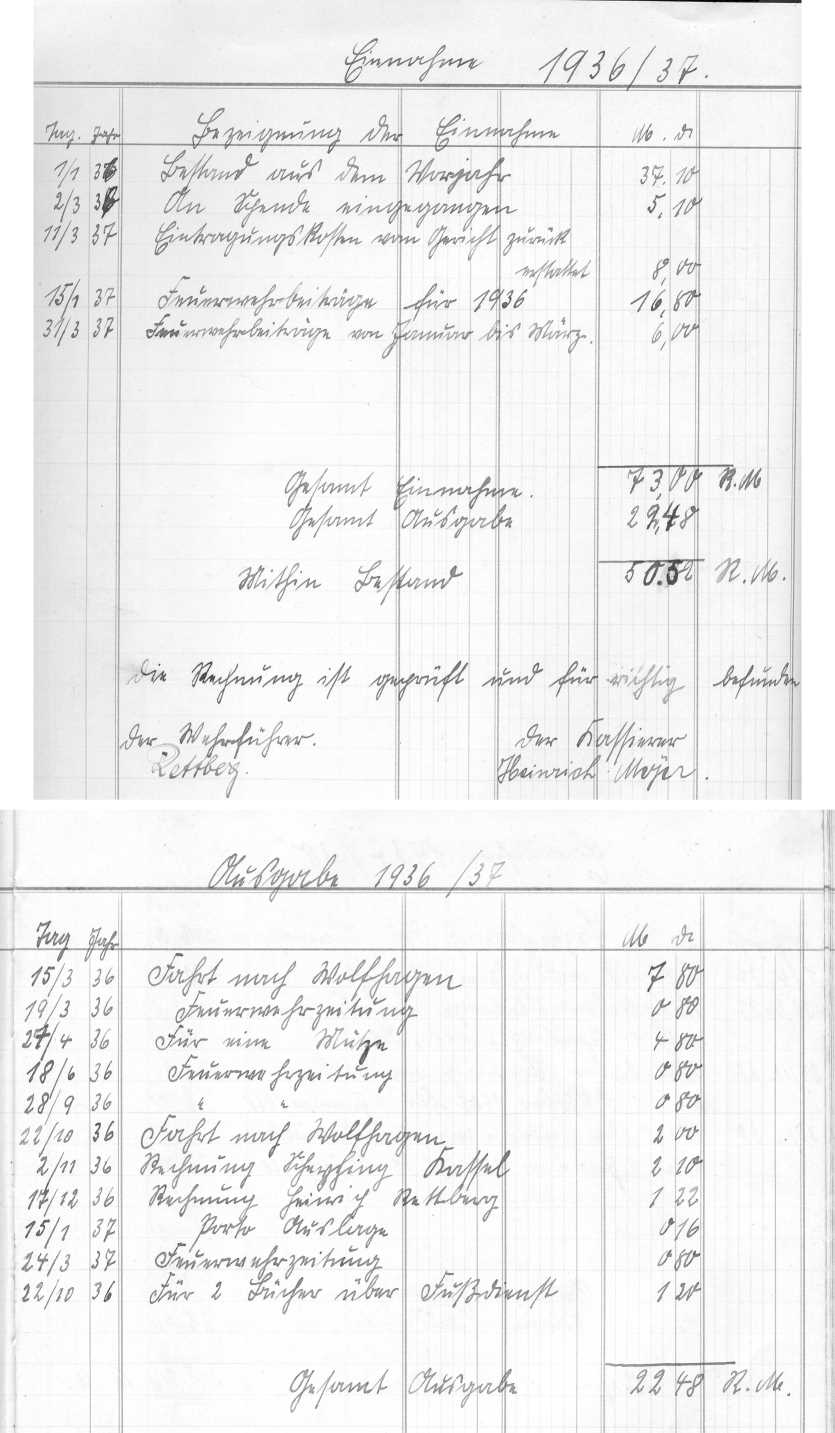 Einnahme 1936/37.
Tag. Jahr Bezeignung der Einnahme M. d
1/1 36 Bestand aus dem Vorjahr 37.10
2/3 36 An Spende eingegangen 5,10
11/3 37 Eintragungskosten vom Gericht zurück
erstattet 8,00
15/1 37 Feuerwehrbeiträge für 1936 16,80
31/3 37 Feuerwehrbeiträge von Januar bis März. 6,00
Gesamt Einnahme. 73,00 R.M
Gesamt Ausgabe 22,48
Mithin Bestand 50.52 R.M.
die Rechnung ist geprüft und für richtig befunden
der Wehrführer. der Kassierer
Rettberg. Heinrich Meyer.
Ausgabe 1936/37
Tag Jahr M d
15/3 36 Fahrt nach Wolfhagen 7 80
19/3 36 Feuerwehrzeitung 0 80
27/4 36 Für eine Mütze 4 80
18/6 36 Feuerwehrzeitung 0 80
28/9 36 " " 0 80
22/10 36 Fahrt nach Wolfhagen 2 00
2/11 36 Rechnung Kassel 2 10
17/12 36 Rechnung Heinrich Rettberg 1 22
15/1 37 Porto Auslage 0 16
24/3 37 Feuerwehrzeitung 0 80
22/10 36 Für 2 Bücher über Fußdienst 1 20
Gesamt Ausgabe 22 48 R.M.